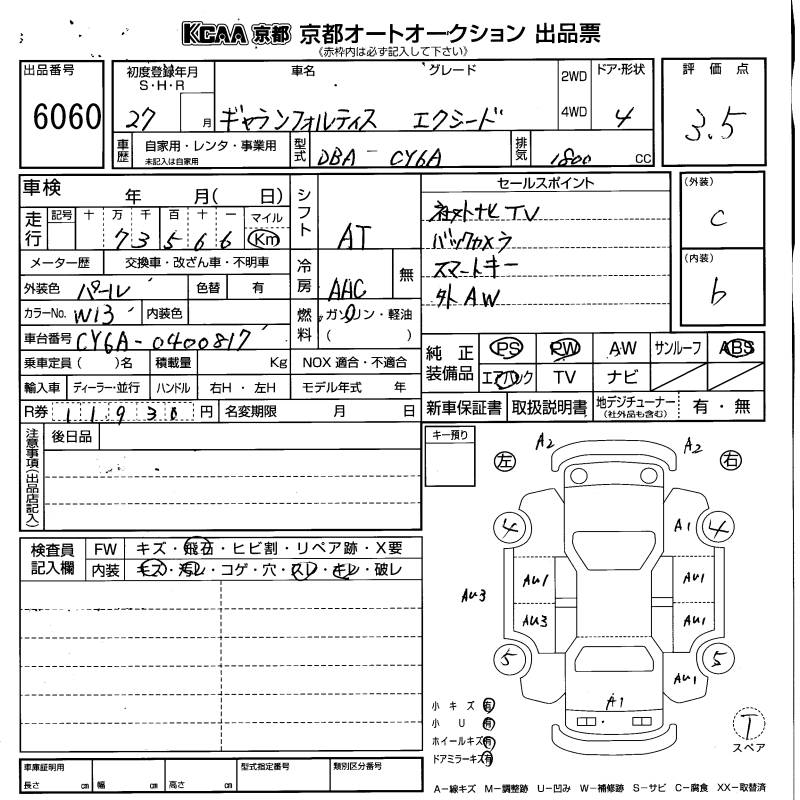 KCAA 京都 京都オートオークション 出品票
《赤枠内は必ず記入して下さい》
出品番号
6060
初度登録年月
S・H・R
27 月
車名
グレード
ギャランフォルティス エクシード
2WD
4WD
ドア・形状
4
評価点
3.5
車歴
自家用・レンタ・事業用
未記入は自家用
型式
DBA-CY6A
排気
1800 CC
車検 年 月( 日)
走行
記号 十 万 千 百 十 一 マイル
73566 Km
シフト
AT
メーター歴 交換車・改ざん車・不明車
冷房
AAC
無
外装色 パール 色替 有
カラーNo. W13 内装色
燃料
ガソリン・軽油
( )
車台番号 CY6A-0400817
乗車定員( )名 積載量 Kg NOX 適合・不適合
輸入車 ディーラー・並行 ハンドル 右H・左H モデル年式 年
R券 11930 円 名変期限 月 日
セールスポイント
ナビTV
バックカメラ
スマートキー
外AW
(外装)
C
(内装)
b
純正装備品
PS PW AW サンルーフ ABS
エアバック TV ナビ
新車保証書 取扱説明書 地デジチューナー
(社外品も含む)
有・無
注意事項(出品店記入)
後日品
キー預り
検査員記入欄
FW キズ・飛石・ヒビ割・リペア跡・X要
内装 キズ・汚レ・コゲ・穴・スレ・キレ・破レ
A2
A2
左
右
4
A1
4
AU1
AU1
AU3
AU3
AU1
5
5
AU1
A1
小キズ 有
小U 有
ホイールキズ 有
ドアミラーキズ 有
T
スペア
車庫証明用
長さ cm 幅 cm 高さ cm
型式指定番号
類別区分番号
A-線キズ M-調整跡 U-凹み W-補修跡 S-サビ C-腐食 XX-取替済